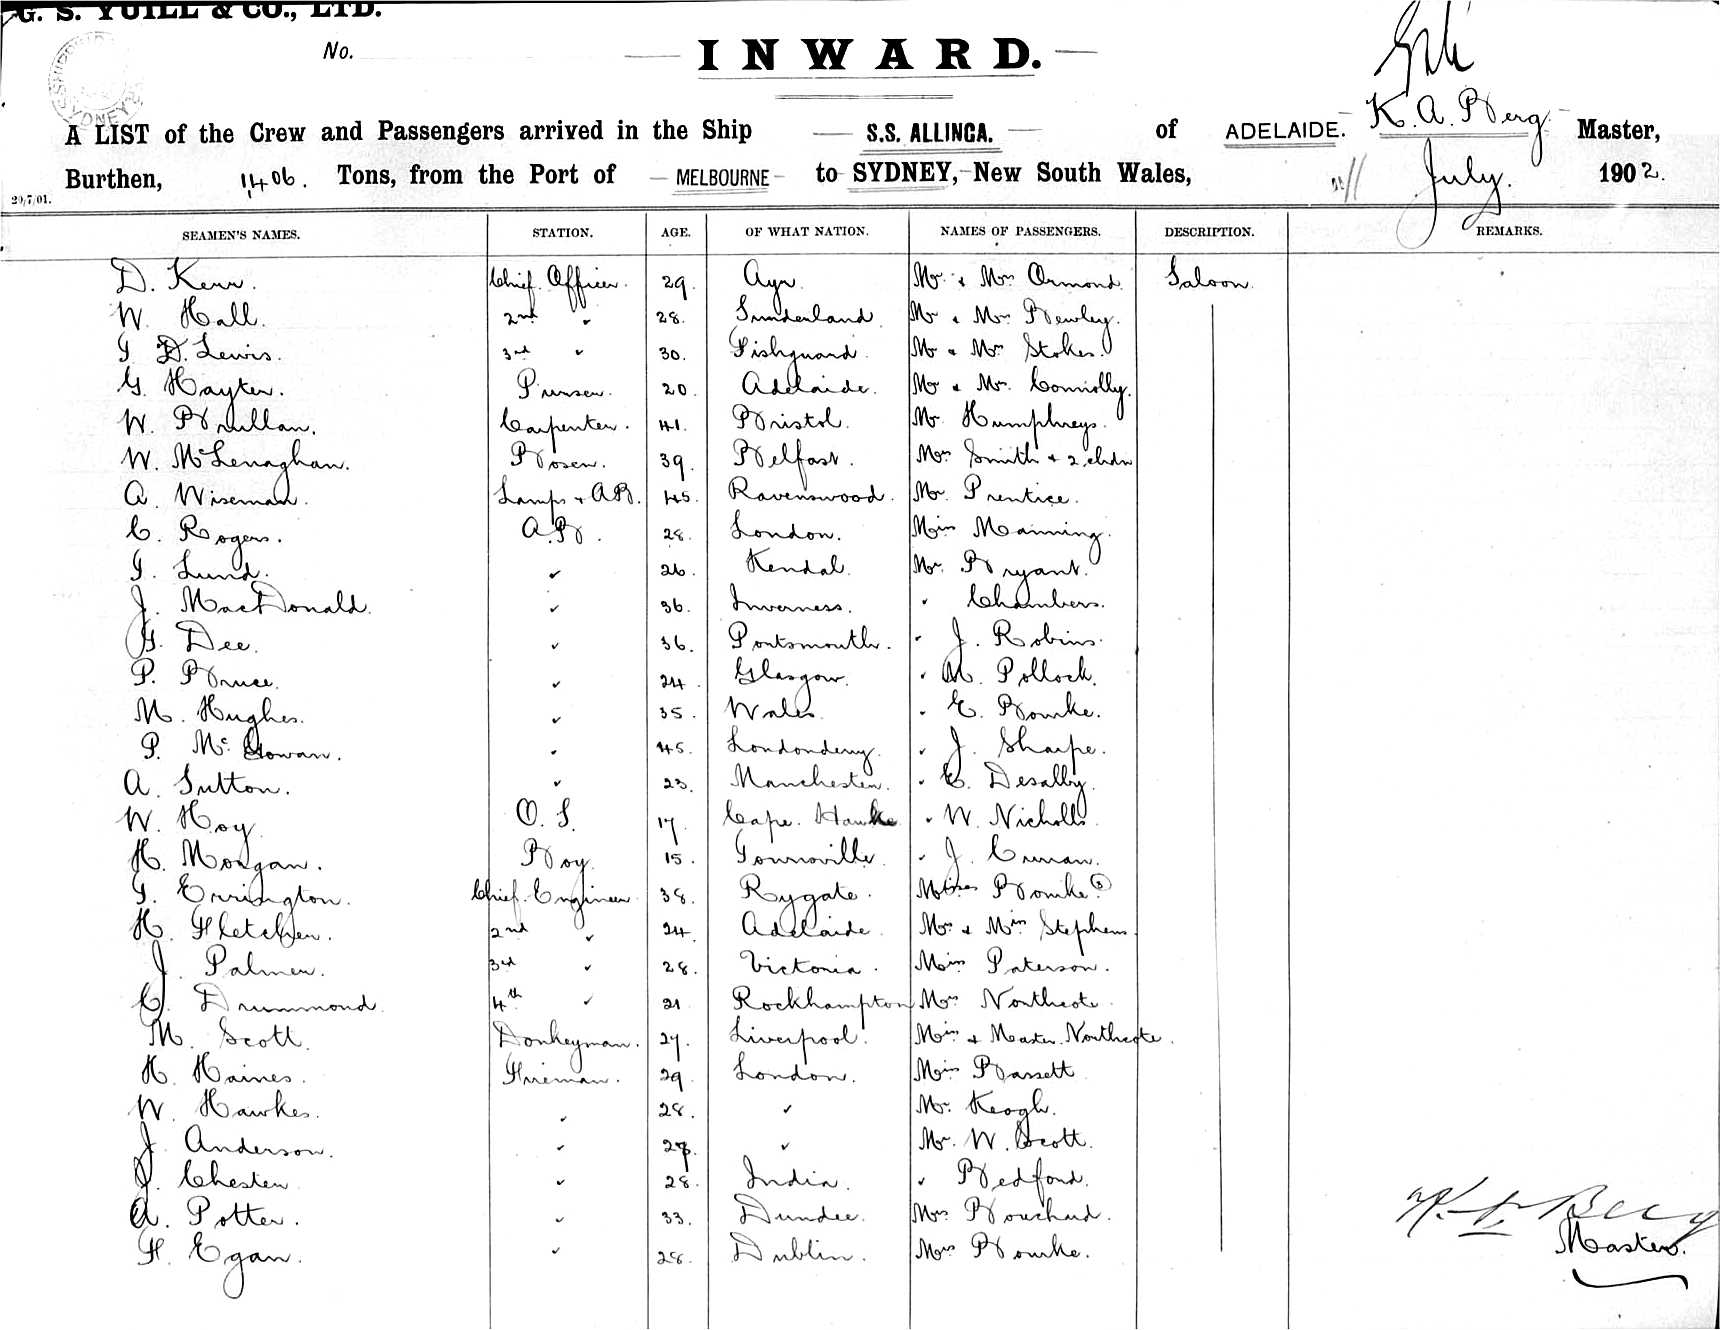 G. S. YUILL & CO., LTD.
No.
INWARD.
A LIST of the Crew and Passengers arrived in the Ship S.S. ALLINGA. of ADELAIDE. K. A. Berg. Master,
Burthen, 1406. Tons, from the Port of MELBOURNE to SYDNEY, New South Wales, July. 1902.
29/7/01.
SEAMEN'S NAMES. STATION. AGE. OF WHAT NATION. NAMES OF PASSENGERS. DESCRIPTION. REMARKS.
D. Kerr. Chief Officer. 29. Ayr. Mr & Mrs Ormond. Saloon.
W. Hall. 2nd " 28. Sunderland. Mr & Mrs Bewley.
D. Lewis. 3rd " 30. Fishguard. Mr & Mrs Stokes.
G. Hayter. Purser. 20. Adelaide. Mr & Mrs. Connolly.
W. Brullan. Carpenter. 41. Bristol. Mr Humphreys.
W. McLenaghan. Bosen. 39. Belfast. Mrs Smith & 2 chdn
A. Wiseman. Lamps & AB. 45. Ravenswood. Mr. Prentice.
C. Rogers. A.B. 28. London. Miss Manning.
Lund. " 26. Kendal. Mr. Bryant.
J. MacDonald. " 36. Inverness. " Chambers.
G. Dee. " 36. Portsmouth. " J. Robins.
P. Bruce. " 24. Glasgow. " M. Pollock.
M. Hughes. " 35. Wales. " E. Bourke.
P. McGowan. " 45. Londonderry. " J. Sharpe.
A. Sutton. " 23. Manchester. " C. Desally.
W. Hoy. O. S. 17. Cape. Hawke " W. Nicholls.
H. Morgan. Boy. 15. " J. Curran.
Errington. Chief Engineer 38. Rygate. Misses Bourke (3)
H. Fletcher. 2nd " 24. Adelaide. Mrs & Miss Stephens.
J. Palmer. 3rd " 28. Victoria. Miss Paterson.
C. Drummond. 4th " 21 Rockhampton Mrs Northcote.
M. Scott. Donkeyman. 27. Liverpool. Miss & Master. Northcote.
H. Haines. Fireman. 29. London. Miss Bassett
W. Hawkes. " 28. " Mr. Keogh.
J. Anderson. " " Mr. W. Scott.
Chester. " 28. India. " Bedford.
A. Potter. " 33. Dundee. Mrs Bouchard.
F. Egan. " 28. Dublin. Mrs Bourke.
Berg
Master.